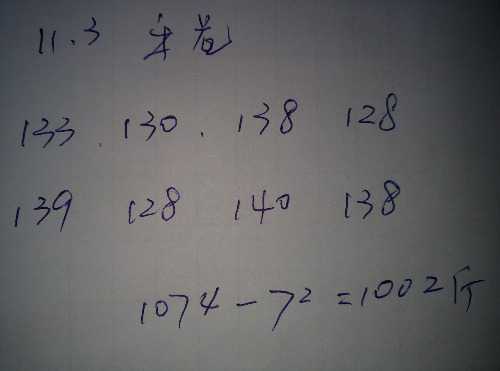 11.3
133.130.138 128
139 128 140 138
1074-72=1002斤